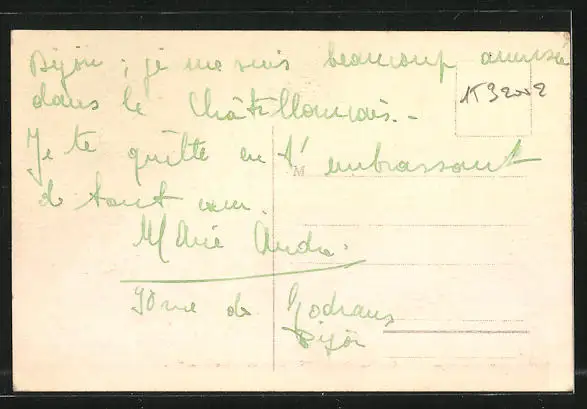 Dijon ; je me suis beaucoup amusée
dans le Châtillonnais. -
Je te quitte en t'embrassant
de tout cœur.
M
Marie Andrée.
90 rue de Godrans
Dijon